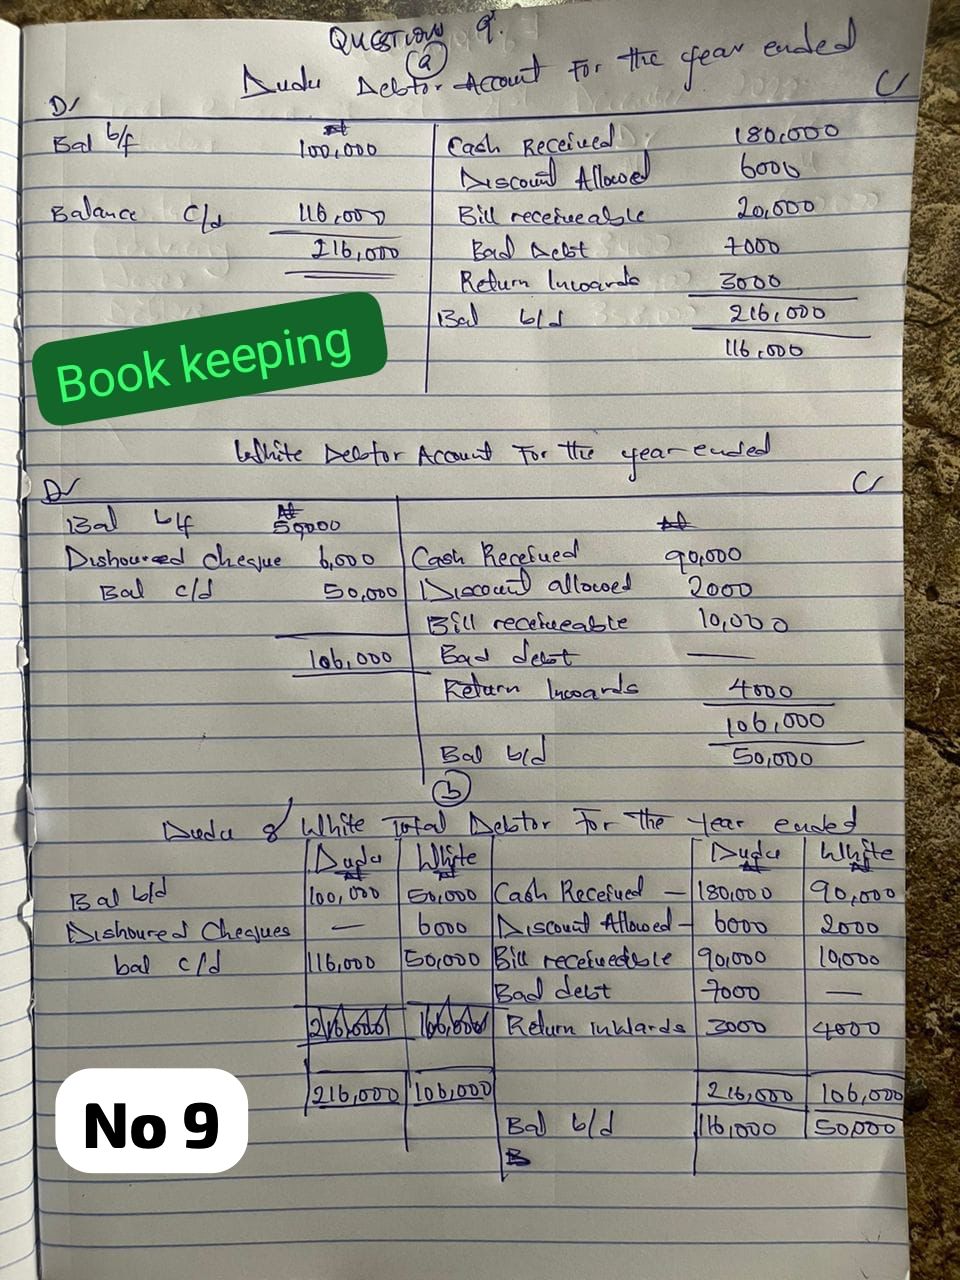 QUESTION 9.
(a)
Dudu Debtor Account For the year ended
Dr Cr
Bal b/f ₦ 100,000 Cash Received 180,000
Discount Allowed 6000
Balance c/d 116,000 Bill receiveable 20,000
216,000 Bad Debt 7000
Return Inwards 3000
Bal b/d 216,000
116,000
Book keeping
White Debtor Account For the year ended
Dr Cr
Bal b/f ₦ 50000 ₦
Dishoured cheque 6,000 Cash Received 90,000
Bal c/d 50,000 Discount allowed 2000
Bill receiveable 10,000
106,000 Bad debt —
Return Inwards 4000
106,000
Bal b/d 50,000
(b)
Dudu & White Total Debtor For the year ended
Dudu White Dudu White
₦ ₦ ₦ ₦
Bal b/d 100,000 50,000 Cash Received — 180,000 90,000
Dishoured Cheques — 6000 Discount Allowed — 6000 2000
bal c/d 116,000 50,000 Bill receiveable 90,000 10,000
Bad debt 7000 —
216,000 106,000 Return inwards 3000 4000
216,000 106,000 216,000 106,000
Bal b/d 116,000 50,000
B
No 9